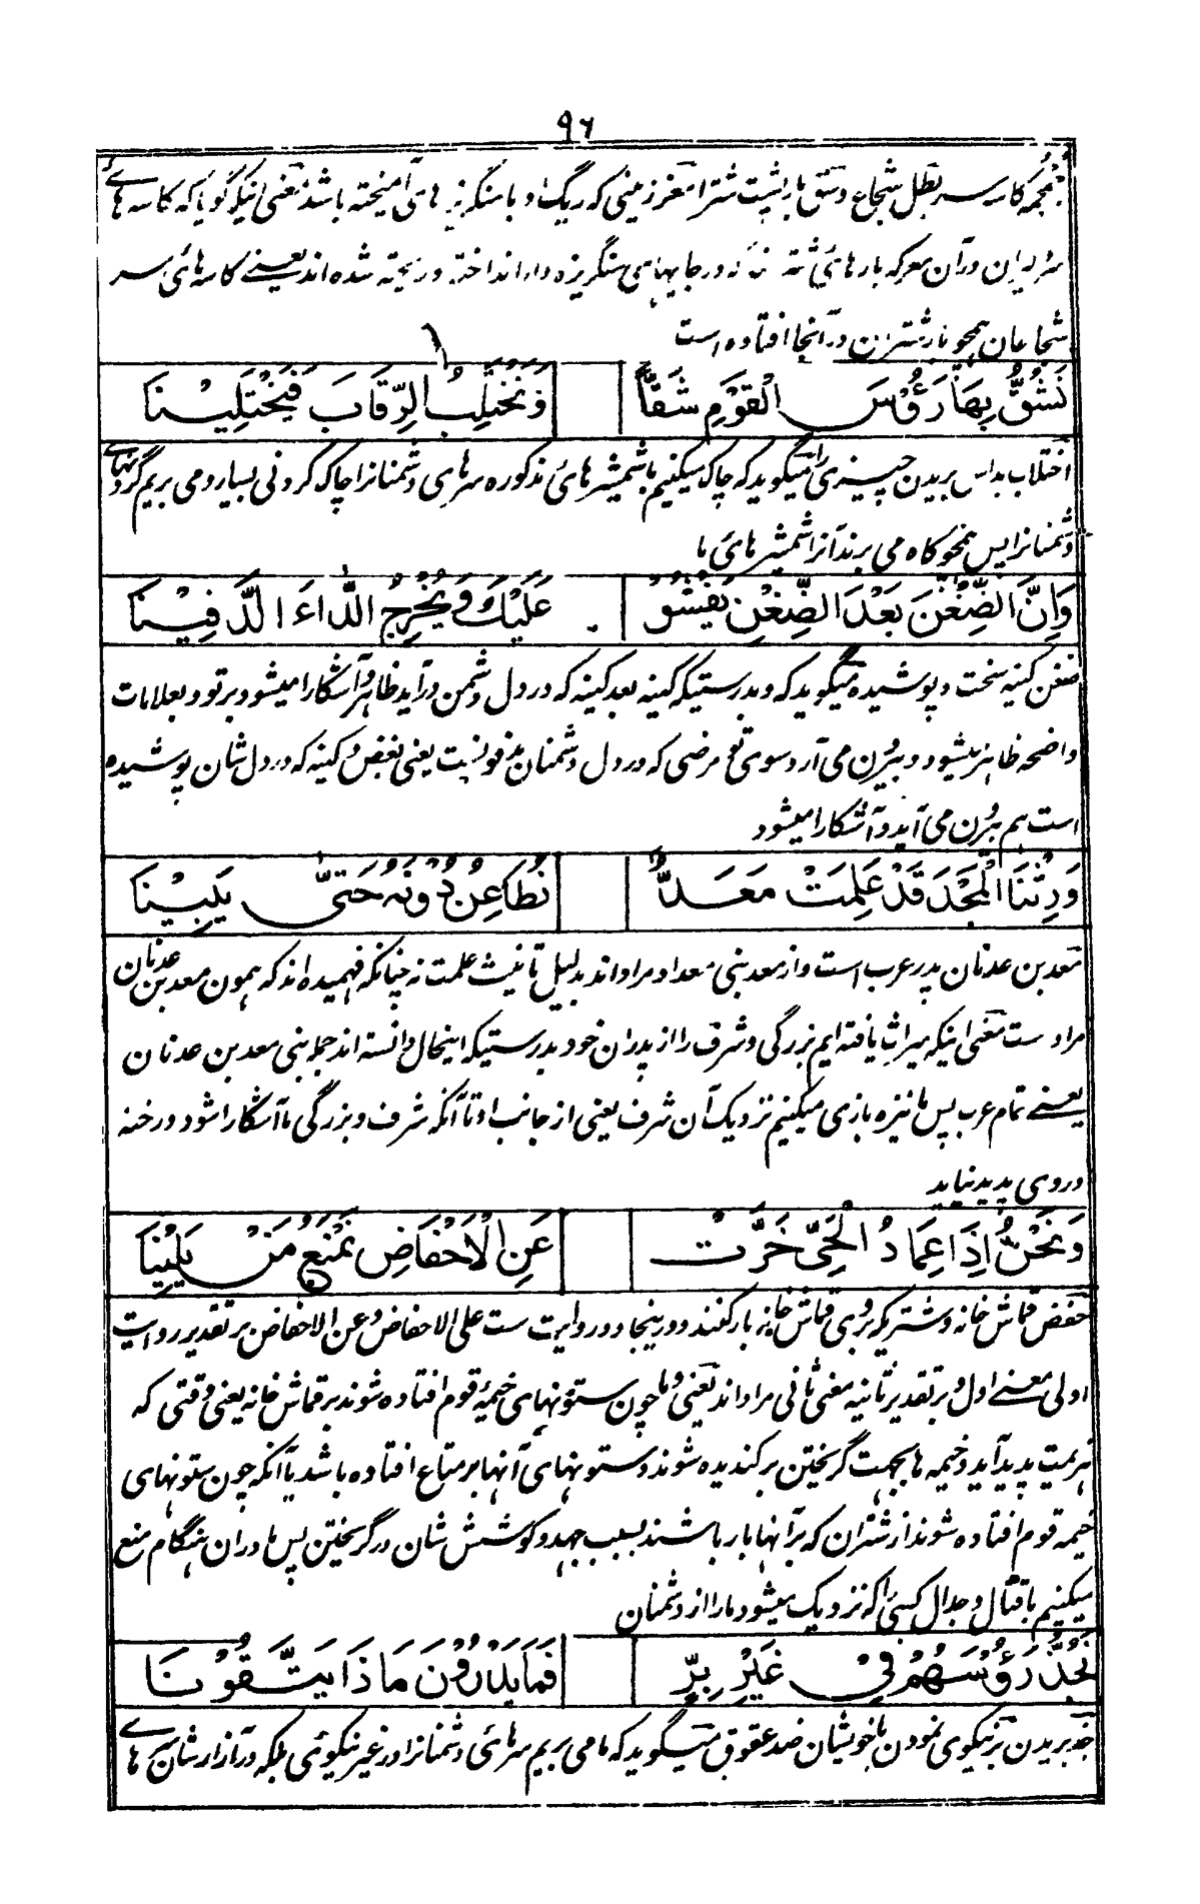 ۹۶
جمجمه کاسه سر بطل شجاع وسق بار پشت شتر امعز زمینی که ریگ او با سنگریزه های آمیخته باشد معنی اینکه گویا که کاسه های
دران معرکه بارهای در جایهای سنگریزه دار انداخته و ریخته شده اند یعنے کاسه هائی سر
شجاعان همچو بار شتران در آنجا افتاده است
نَشُقُّ بِهَا رَؤُسَ الْقَوْمِ شَقًّا وَنَخْتَلِبُ الرِّقَابَ فَيَخْتَلِيْنَا
اختلاب بداس بریدن چیزی را میگوید که چاک میکنیم با شمشیرهائی مذکوره سرهای دشمنانرا چاک کردنی بسیار و می بریم گردنهای
دشمنانرا پس همچو کاه می برند آنرا شمشیرهائی ما
وَاِنَّ الضِّغْنَ بَعْدَ الضِّغْنِ يَفْشُوْ عَلَيْكَ وَيُخْرِجُ الدَّاءَ الدَّفِيْنَا
ضغن کینه سخت و پوشیده میگوید که و بدرستیکه کینه بعد کینه که در دل دشمن در آید ظاهر و آشکارا میشود بر تو و بعلامات
واضحه ظاهر میشود و بیرون می آرد سوی تو مرضی که در دل دشمنان مدفونست یعنی بغض و کینه که در دل شان پوشیده
است هم بیرون می آید و آشکارا میشود
وَرِثْنَا الْمَجْدَ قَدْ عَلِمَتْ مَعَدٌّ نُطَاعِنُ دُوْنَهُ حَتّٰى يَبِيْنَا
معد بن عدنان پدر عرب است و از معد بنی معد او مراد اند بدلیل تانیث علمت نه چنانکه فهمیده اند که همون معد بن عدنان
مراد ست معنی اینکه میراث یافته ایم بزرگی و شرف را از پدران خود بدرستیکه اینحال دانسته اند جمله بنی معد بن عدنان
یعنے تمام عرب پس ما نیزه بازی میکنیم نزدیک آن شرف یعنی از جانب او تا آنکه شرف و بزرگی ما آشکارا شود و رخنه
در وی پدید نیاید
وَنَحْنُ اِذَا عِمَادُ الْحَيِّ خَرَّتْ عَنِ الْاَحْفَاضِ نَمْنَعُ مَنْ يَلِيْنَا
حفض قماش خانه و شتر که بروی قماش خانه بار کنند و در ینجا دو روایت ست علی الاحفاض و عن الاحفاض بر تقدیر روایت
اولی معنے اول و بر تقدیر ثانیه معنی ثانی مراد اند یعنی و ما چون ستونهای خیمۀ قوم افتاده شوند بر قماش خانه یعنی وقتی که
هزیمت پدید آید و خیمه ها بجهت گریختن برکندیده شوند و ستونهای آنها بر متاع افتاده باشد یا آنکه چون ستونهای
خیمه قوم افتاده شوند از شتران که بر آنها بار باشند بسبب جهد و کوشش شان در گریختن پس ما دران هنگام منع
میکنیم با قتال و جدال کسی را که نزدیک میشود مارا از دشمنان
نَجُذُّ رَؤُسَهُمْ فِيْ غَيْرِ بِرٍّ فَمَا يَدْرُوْنَ مَاذَا يَتَّقُوْنَا
جذ بریدن بر نیکوی نمودن با خویشان ضد عقوق میگوید که ما می بریم سرهائی دشمنانرا در غیر نیکوئی بلکه در آزار شان سرهای